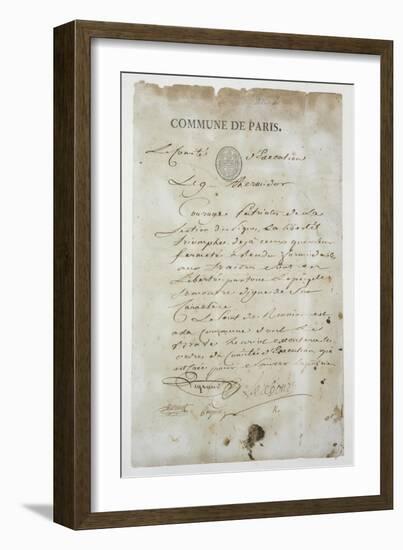 COMMUNE DE PARIS.
Le Comité d'Execution
Le 9 thermidor
Courage Patriotes de La
Section des Piques, La liberté
triomphe, deja ceux que leur
fermeté a rendu formidable
aux traitres sont en
Liberté partout Le peuple
se montre digne de Son
Caractere
Le Point de Reunion est
a la Commune dont Le
brave henriot executera les
ordres du Comité d'Execution qui
est créé pour Sauver la patrie
Legrand Lerebours
Payan